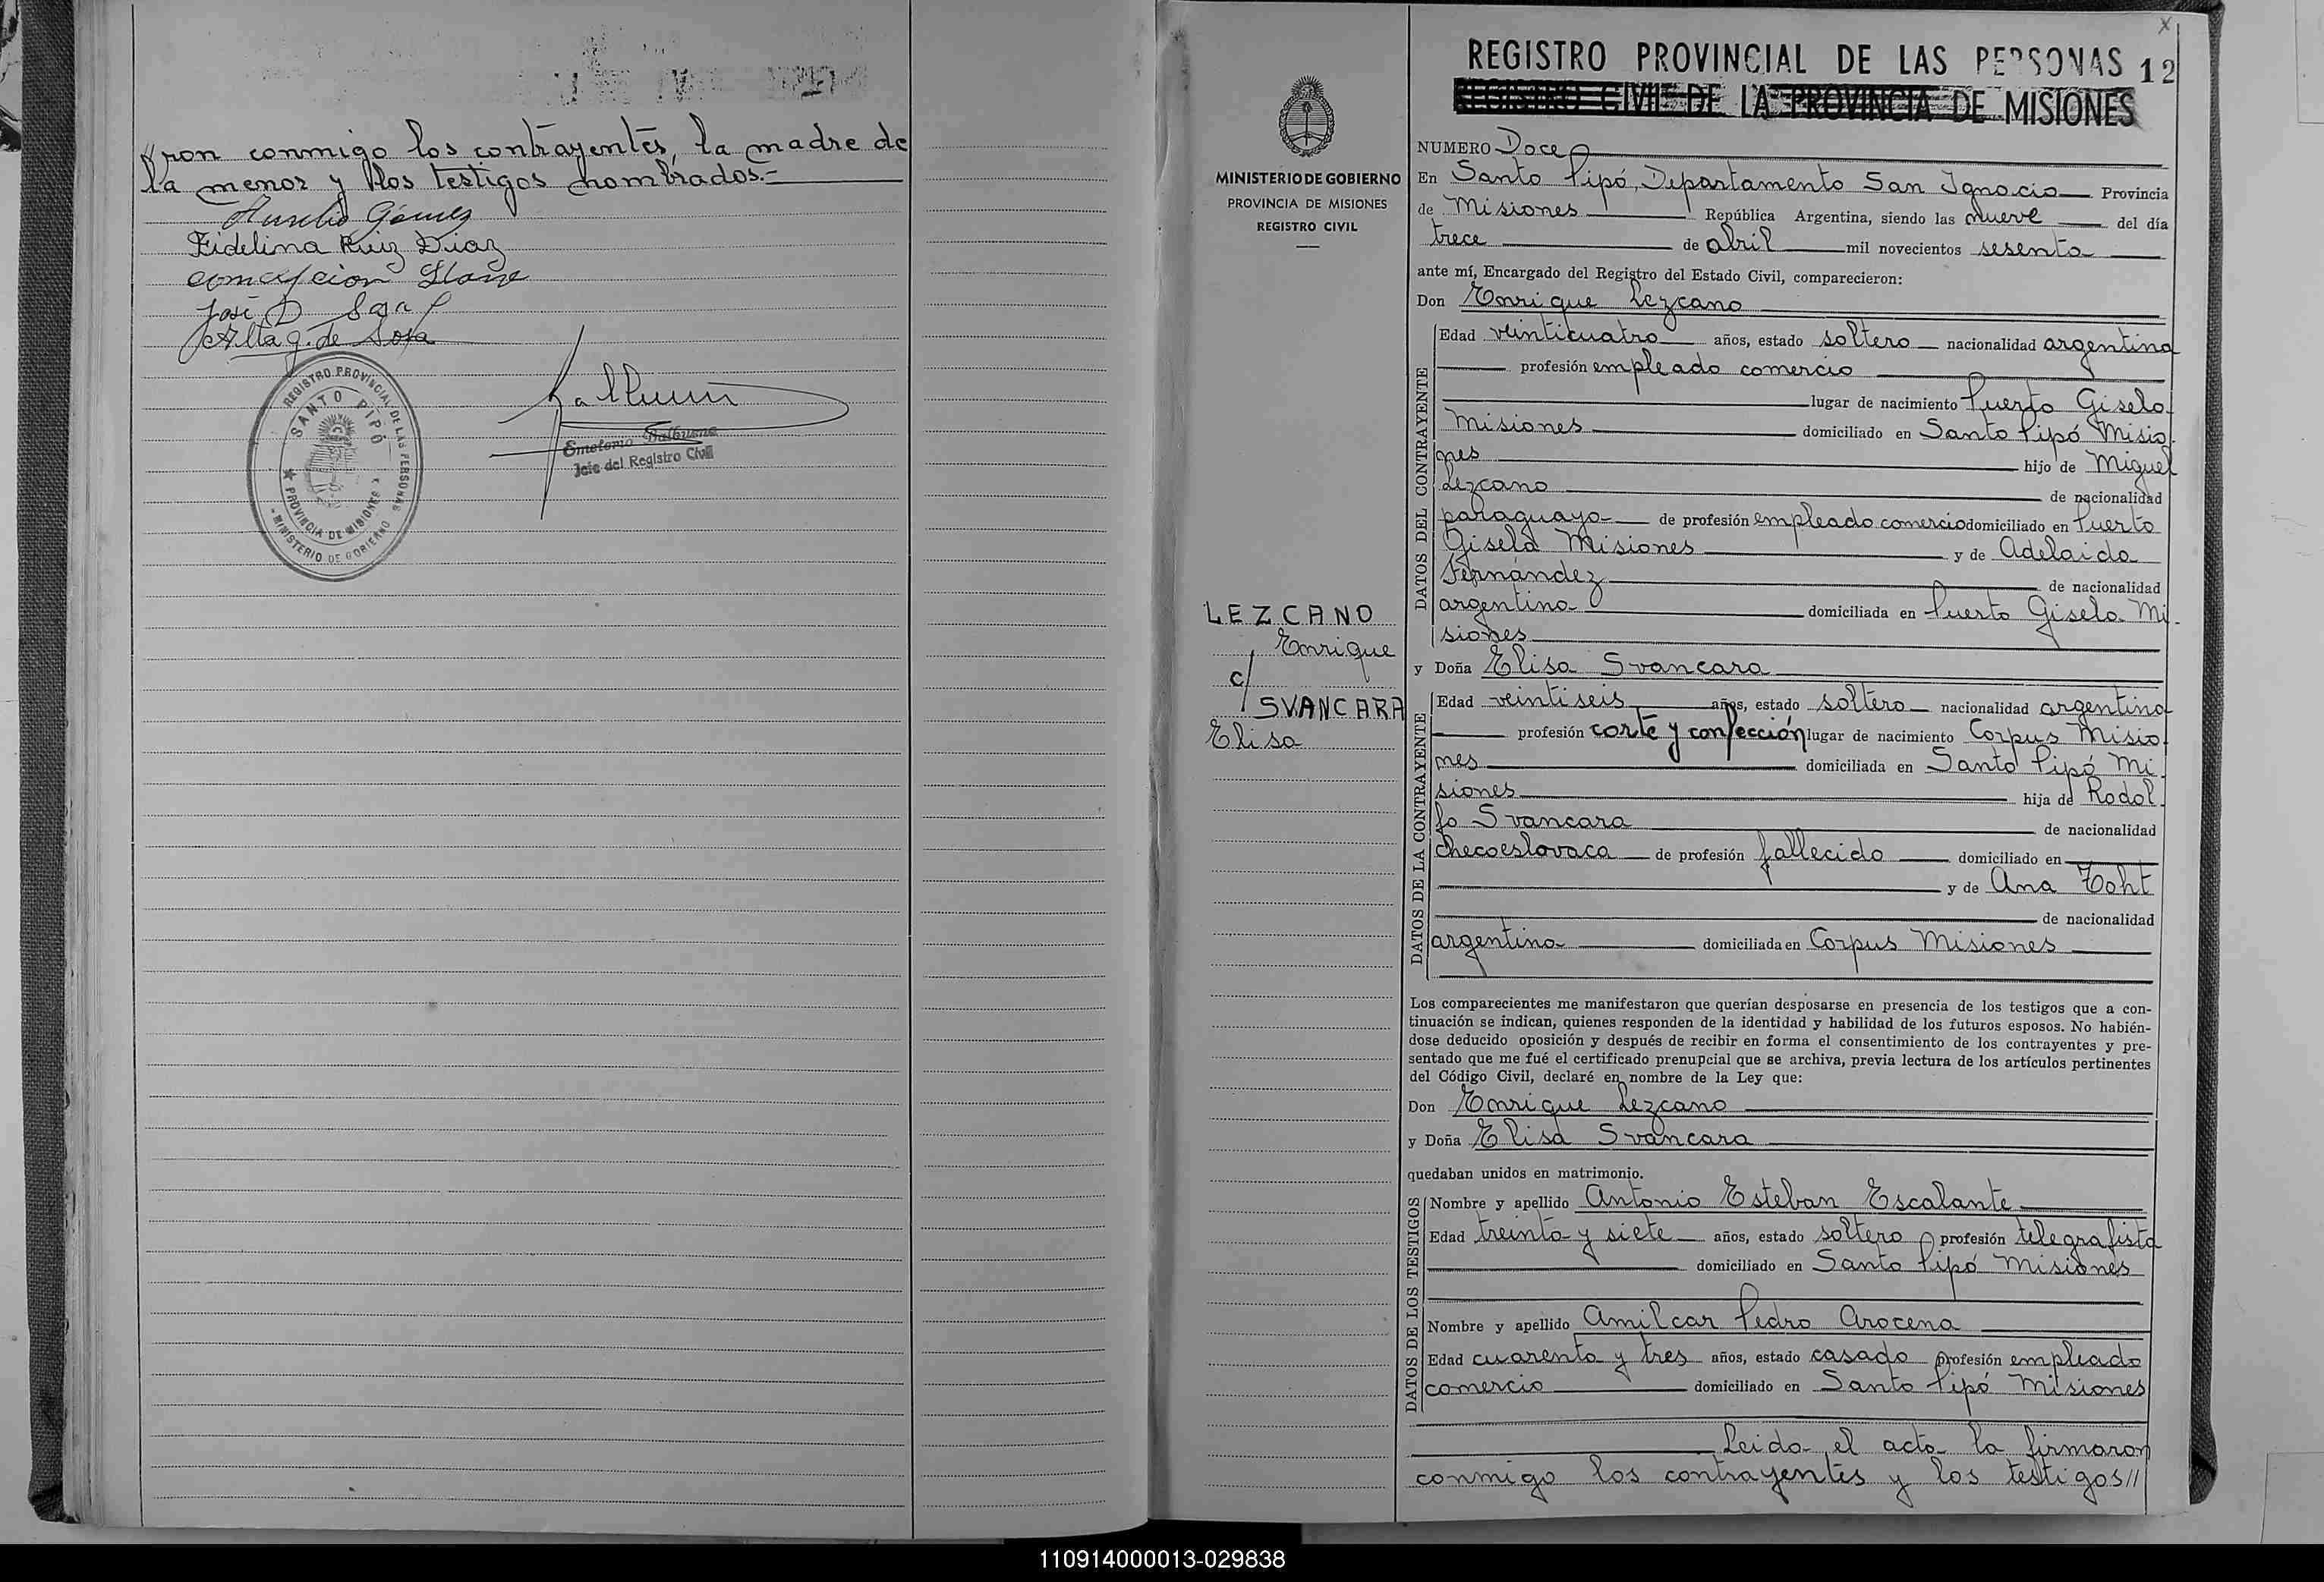 ron conmigo los contrayentes, la madre de
la menor y los testigos nombrados.-
Aurelio Gómez
Fidelina Ruiz Diaz
José D Sosa
Alta g. de Sosa
REGISTRO PROVINCIAL DE LAS PERSONAS
SANTO PIPÓ
PROVINCIA DE MISIONES
- MINISTERIO DE GOBIERNO
Emeterio Balbuena
Jefe del Registro Civil
MINISTERIO DE GOBIERNO
PROVINCIA DE MISIONES
REGISTRO CIVIL
LEZCANO
Enrique
c/
SVANCARA
Elisa
REGISTRO PROVINCIAL DE LAS PERSONAS 12
REGISTRO CIVIL DE LA PROVINCIA DE MISIONES
NUMERO Doce
En Santo Pipó, Departamento San Ignacio Provincia
de Misiones República Argentina, siendo las nueve del día
trece de abril mil novecientos sesenta
ante mí, Encargado del Registro del Estado Civil, comparecieron:
Don Enrique Lezcano
DATOS DEL CONTRAYENTE
Edad veinticuatro años, estado soltero nacionalidad argentina
profesión empleado comercio
lugar de nacimiento Puerto Gisela
Misiones domiciliado en Santo Pipó Misio-
nes hijo de Miguel
Lezcano de nacionalidad
paraguaya de profesión empleado comercio domiciliado en Puerto
Gisela Misiones y de Adelaida
Fernández de nacionalidad
argentina domiciliada en Puerto Gisela Mi-
siones
y Doña Elisa Svancara
DATOS DE LA CONTRAYENTE
Edad veintiseis años, estado soltera nacionalidad argentina
profesión corte y confección lugar de nacimiento Corpus Misio-
nes domiciliada en Santo Pipó Mi-
siones hija de Rodol-
fo Svancara de nacionalidad
checoeslovaca de profesión fallecido domiciliado en
y de Ana Toht
de nacionalidad
argentina domiciliada en Corpus Misiones
Los comparecientes me manifestaron que querían desposarse en presencia de los testigos que a con-
tinuación se indican, quienes responden de la identidad y habilidad de los futuros esposos. No habién-
dose deducido oposición y después de recibir en forma el consentimiento de los contrayentes y pre-
sentado que me fué el certificado prenupcial que se archiva, previa lectura de los artículos pertinentes
del Código Civil, declaré en nombre de la Ley que:
Don Enrique Lezcano
y Doña Elisa Svancara
quedaban unidos en matrimonio.
DATOS DE LOS TESTIGOS
Nombre y apellido Antonio Esteban Escalante
Edad treinta y siete años, estado soltero profesión telegrafista
domiciliado en Santo Pipó Misiones
Nombre y apellido Amilcar Pedro Arocena
Edad cuarenta y tres años, estado casado profesión empleado
comercio domiciliado en Santo Pipó Misiones
Leida el acta la firmaron
conmigo los contrayentes y los testigos//
110914000013-029838